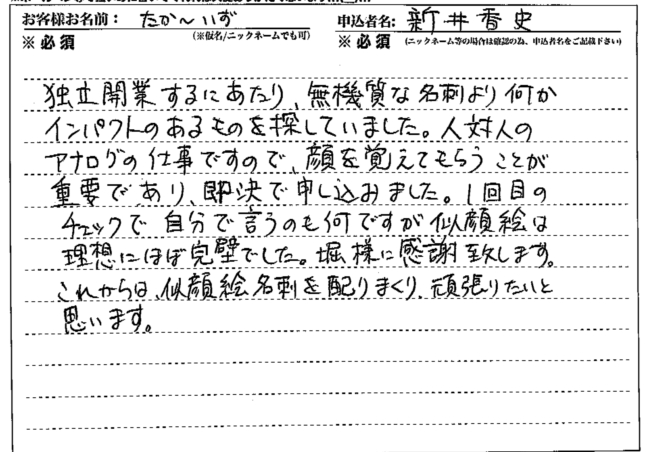 お客様お名前： たか〜いず 申込者名: 新井香史
※必須 (※仮名/ニックネームでも可) ※必須 (ニックネーム等の場合は確認の為、申込者名をご記載下さい)
独立開業するにあたり、無機質な名刺より何か
インパクトのあるものを探していました。人対人の
アナログの仕事ですので、顔を覚えてもらうことが
重要であり、即決で申し込みました。1回目の
チェックで自分で言うのも何ですが似顔絵は
理想にほぼ完璧でした。堀様に感謝致します。
これからは、似顔絵名刺を配りまくり、頑張りたいと
思います。